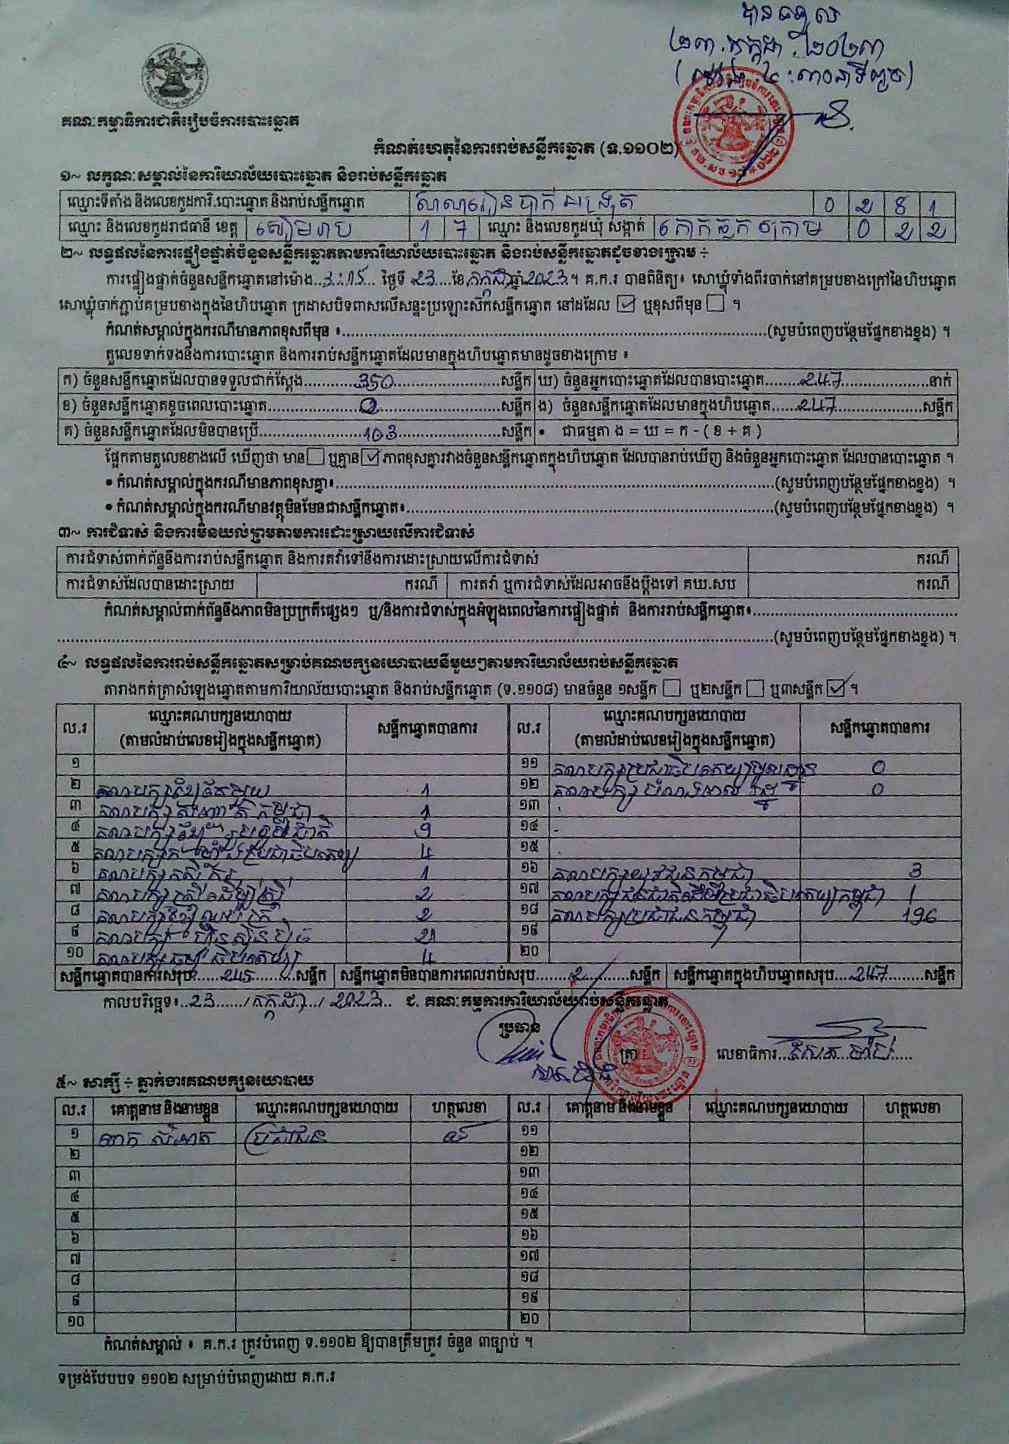 បានទទួល
២៣.កក្កដា.២០២៣
គណៈកម្មាធិការជាតិរៀបចំការបោះឆ្នោត
កំណត់ហេតុនៃការរាប់សន្លឹកឆ្នោត (ទ.១១០២)
១~ លក្ខណៈសម្គាល់នៃការិយាល័យបោះឆ្នោត និងរាប់សន្លឹកឆ្នោត
ឈ្មោះទីតាំង និងលេខកូដការិ.បោះឆ្នោត និងរាប់សន្លឹកឆ្នោត សាលារៀន 0 2 8 1
ឈ្មោះ និងលេខកូដរាជធានី ខេត្ត សៀមរាប 1 7 ឈ្មោះ និងលេខកូដឃុំ សង្កាត់ គោកធ្លកក្រោម 0 2 2
២~ លទ្ធផលនៃការផ្ទៀងផ្ទាត់ចំនួនសន្លឹកឆ្នោតតាមការិយាល័យបោះឆ្នោត និងរាប់សន្លឹកឆ្នោតដូចខាងក្រោម ÷
ការផ្ទៀងផ្ទាត់ចំនួនសន្លឹកឆ្នោតនៅម៉ោង..3:05... ថ្ងៃទី 23...ខែ.កក្កដា.ឆ្នាំ.2023.។ គ.ក.រ បានពិនិត្យ៖ សោឃ្លុំទាំងពីរចាក់នៅគម្របខាងក្រៅនៃហិបឆ្នោត
សោឃ្លុំចាក់ភ្ជាប់គម្របខាងក្នុងនៃហិបឆ្នោត ក្រដាសបិទពាសលើសន្ទះប្រឡោះស៊កសន្លឹកឆ្នោត នៅដដែល ☑ ឬខុសពីមុន ☐ ។
កំណត់សម្គាល់ក្នុងករណីមានភាពខុសពីមុន ៖.....(សូមបំពេញបន្ថែមផ្នែកខាងខ្នង) ។
តួលេខទាក់ទងនឹងការបោះឆ្នោត និងការរាប់សន្លឹកឆ្នោតដែលមានក្នុងហិបឆ្នោតមានដូចខាងក្រោម ៖
ក) ចំនួនសន្លឹកឆ្នោតដែលបានទទួលជាក់ស្តែង.....350.....សន្លឹក ឃ) ចំនួនអ្នកបោះឆ្នោតដែលបានបោះឆ្នោត.....247.....នាក់
ខ) ចំនួនសន្លឹកឆ្នោតខូចពេលបោះឆ្នោត.....0.....សន្លឹក ង) ចំនួនសន្លឹកឆ្នោតដែលមានក្នុងហិបឆ្នោត.....247.....សន្លឹក
គ) ចំនួនសន្លឹកឆ្នោតដែលមិនបានប្រើ.....103.....សន្លឹក • ជាធម្មតា ង = ឃ = ក - ( ខ + គ )
ផ្អែកតាមតួលេខខាងលើ ឃើញថា មាន ☐ ឬគ្មាន ☑ ភាពខុសគ្នារវាងចំនួនសន្លឹកឆ្នោតក្នុងហិបឆ្នោត ដែលបានរាប់ឃើញ និងចំនួនអ្នកបោះឆ្នោត ដែលបានបោះឆ្នោត ។
• កំណត់សម្គាល់ក្នុងករណីមានភាពខុសគ្នា៖.....(សូមបំពេញបន្ថែមផ្នែកខាងខ្នង) ។
• កំណត់សម្គាល់ក្នុងករណីមានវត្ថុមិនមែនជាសន្លឹកឆ្នោត៖.....(សូមបំពេញបន្ថែមផ្នែកខាងខ្នង) ។
៣~ ការជំទាស់ និងការមិនយល់ព្រមតាមការដោះស្រាយលើការជំទាស់
ការជំទាស់ពាក់ព័ន្ធនឹងការរាប់សន្លឹកឆ្នោត និងការតវ៉ាទៅនឹងការដោះស្រាយលើការជំទាស់ ករណី
ការជំទាស់ដែលបានដោះស្រាយ ករណី ការតវ៉ា ឬការជំទាស់ដែលអាចនឹងប្តឹងទៅ គឃ.សប ករណី
កំណត់សម្គាល់ពាក់ព័ន្ធនឹងភាពមិនប្រក្រតីផ្សេងៗ ឬ/និងការជំទាស់ក្នុងអំឡុងពេលនៃការផ្ទៀងផ្ទាត់ និងការរាប់សន្លឹកឆ្នោត៖.....
.....(សូមបំពេញបន្ថែមផ្នែកខាងខ្នង) ។
៤~ លទ្ធផលនៃការរាប់សន្លឹកឆ្នោតសម្រាប់គណបក្សនយោបាយនីមួយៗតាមការិយាល័យរាប់សន្លឹកឆ្នោត
តារាងកត់ត្រាសំឡេងឆ្នោតតាមការិយាល័យបោះឆ្នោត និងរាប់សន្លឹកឆ្នោត (ទ.១១០៨) មានចំនួន ១សន្លឹក ☐ ឬ២សន្លឹក ☐ ឬ៣សន្លឹក ☑ ។
ល.រ ឈ្មោះគណបក្សនយោបាយ (តាមលំដាប់លេខរៀងក្នុងសន្លឹកឆ្នោត) សន្លឹកឆ្នោតបានការ ល.រ ឈ្មោះគណបក្សនយោបាយ (តាមលំដាប់លេខរៀងក្នុងសន្លឹកឆ្នោត) សន្លឹកឆ្នោតបានការ
១ ១១ គណបក្សប្រជាធិបតេយ្យមូលដ្ឋាន 0
២ 1 ១២ 0
៣ 1 ១៣
៤ 9 ១៤
៥ 4 ១៥
៦ គណបក្សកសិករ 1 ១៦ គណបក្សយុវជនកម្ពុជា 3
៧ គណបក្សស្ត្រីដើម្បីស្ត្រី 2 ១៧ គណបក្សជនជាតិដើមប្រជាធិបតេយ្យកម្ពុជា 1
៨ 2 ១៨ គណបក្សប្រជាជនកម្ពុជា 196
៩ គណបក្ស ហ៊្វុនស៊ិនប៉ិច 21 ១៩
១០ 4 ២០
សន្លឹកឆ្នោតបានការសរុប.....245.....សន្លឹក សន្លឹកឆ្នោតមិនបានការពេលរាប់សរុប.....2.....សន្លឹក សន្លឹកឆ្នោតក្នុងហិបឆ្នោតសរុប.....247.....សន្លឹក
កាលបរិច្ឆេទ៖..23..../កក្កដា../2023.. ជ. គណៈកម្មការការិយាល័យរាប់សន្លឹកឆ្នោត
ប្រធាន
ត្រា លេខាធិការ
៥~ សាក្សី ÷ ភ្នាក់ងារគណបក្សនយោបាយ
ល.រ គោត្តនាម និងនាមខ្លួន ឈ្មោះគណបក្សនយោបាយ ហត្ថលេខា ល.រ គោត្តនាម និងនាមខ្លួន ឈ្មោះគណបក្សនយោបាយ ហត្ថលេខា
១ ប្រជាជន ១១
២ ១២
៣ ១៣
៤ ១៤
៥ ១៥
៦ ១៦
៧ ១៧
៨ ១៨
៩ ១៩
១០ ២០
កំណត់សម្គាល់ ៖ គ.ក.រ ត្រូវបំពេញ ទ.១១០២ ឱ្យបានត្រឹមត្រូវ ចំនួន ៣ច្បាប់ ។
ទម្រង់បែបបទ ១១០២ សម្រាប់បំពេញដោយ គ.ក.រ